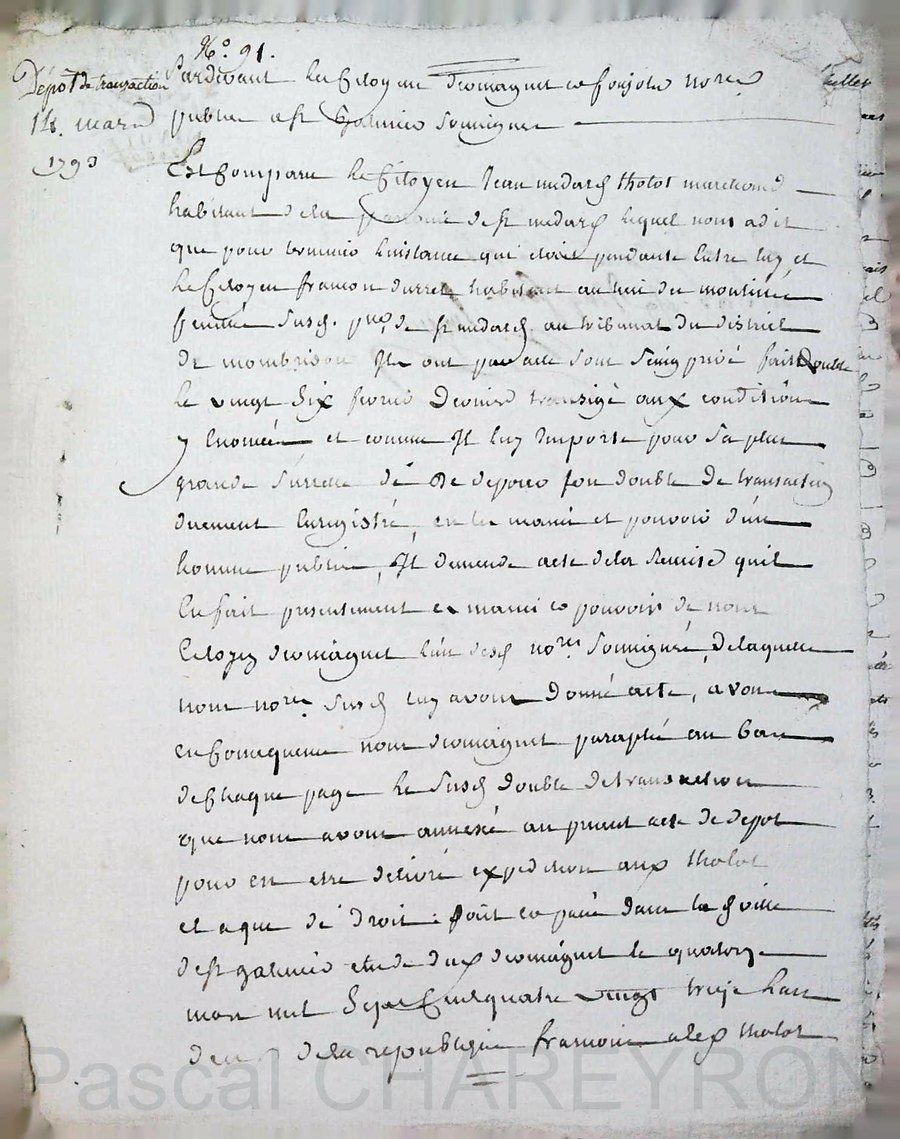 No. 91.
Dépôt de transaction
14. mars
1793
Pardevant les Citoyens Dromagnet et soujols no.res
publics a St Galmier soussignes
Est Comparu le Citoyen Jean medard tholot marchand
habitant de la paroisse de st medard lequel nous a dit
que pour terminer linstance qui etoit pendante Entre luy et
le Citoyen francois habitant au lieu du
susd. par. de st medard. au tribunal du district
de mombrison Ils ont par acte sous seing privé fait Double
le vingt Six fevrier Dernier transigé aux conditions
y Enoncées et comme Il luy Importe pour sa plus
grande surette de De deposer son double De transaction
duement Enregistré, en les mains et pouvoir d'un
homme public, Il demende acte de la remise quil
En fait presentement es mains et pouvoir de nous
Citoyen Dromagnet l'un desd no.res soussignés, de laquelle
nous no.res susd luy avons Donné acte, avons
en Consequence nous dromagnet paraphé au bas
de Chaque page le susd double de transaction
que nous avons annexé au present acte de depot
pour en etre délivré expedition aud tholot
et a que de Droit : fait et passé dans la d ville
de st galmier etude dud dromagnet le quatorze
mars mil Sept Cent quatre vingt treize lan
deux de la republique francoise led tholot
Pascal CHAREYRON